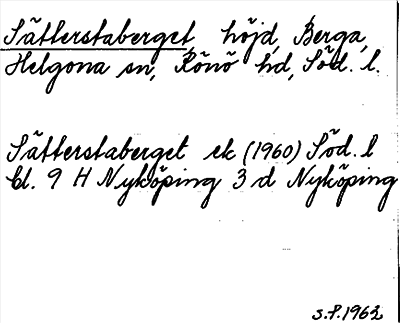 Sätterstaberget, höjd, Berga,
Helgona sn, Rönö hd, Söd. l.
Sätterstaberget ek (1960) Söd. l
bl. 9 H Nyköping 3 d Nyköping
S.P. 1962